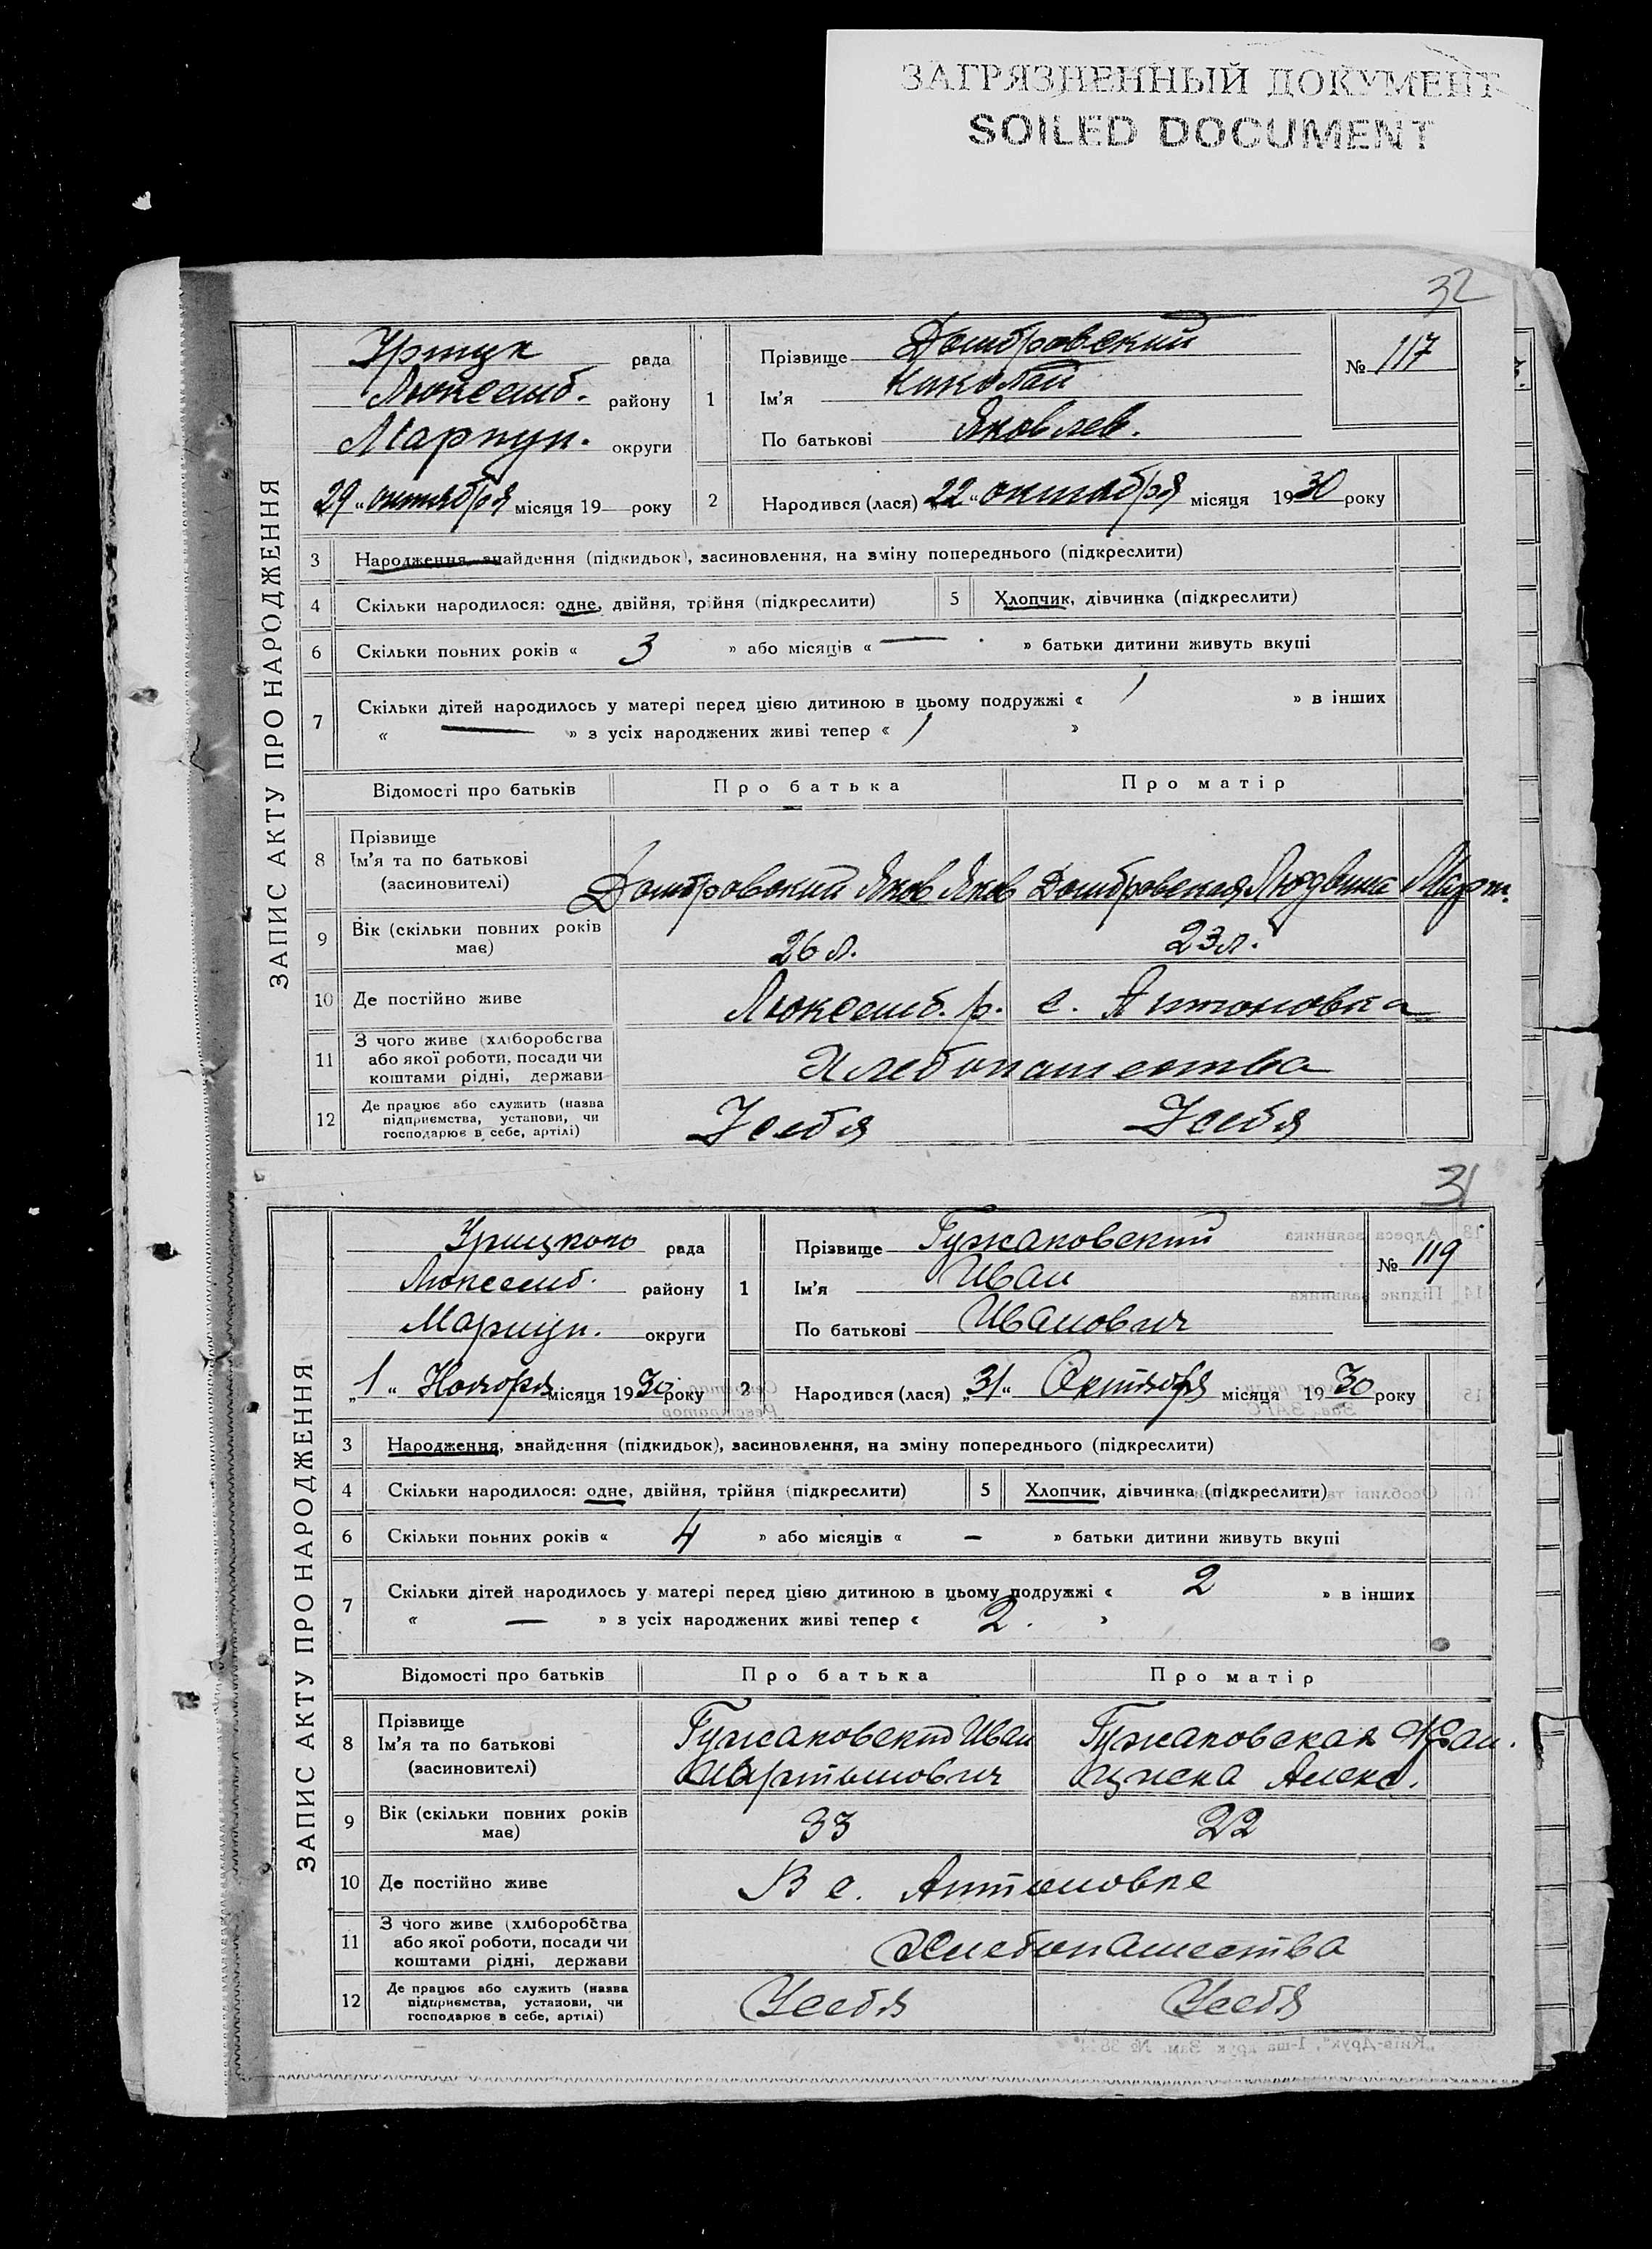 ЗАГРЯЗНЕННЫЙ ДОКУМЕНТ
SOILED DOCUMENT
32
ЗАПИС АКТУ ПРО НАРОДЖЕННЯ
Урицк рада
Люксемб. району
Мариуп. округи
29 „ октября місяця 19 року
1
Прізвище Домбровский
Ім'я Николай
По батькові Яковлев.
№ 117
2 Народився (лася) 22 „ октября місяця 1930 року
3 Народження, знайдення (підкидьок), засиновлення, на зміну попереднього (підкреслити)
4 Скільки народилося: одне, двійня, трійня (підкреслити) 5 Хлопчик, дівчинка (підкреслити)
6 Скільки повних років « 3 » або місяців « — » батьки дитини живуть вкупі
7 Скільки дітей народилось у матері перед цією дитиною в цьому подружжі « 1 » в інших
« — » з усіх народжених живі тепер « 1 »
Відомості про батьків Про батька Про матір
8 Прізвище
Ім'я та по батькові
(засиновителі)
Домбровский Яков Яков Домбровская Людвина Март.
9 Вік (скільки повних років
має)
26 л. 23 л.
10 Де постійно живе Люксемб. р. с. Антоновка
11 З чого живе (хліборобства
або якої роботи, посади чи
коштами рідні, держави
Хлебопашества
12 Де працює або служить (назва
підприємства, установи, чи
господарює в себе, артілі)
У себя У себя
31
ЗАПИС АКТУ ПРО НАРОДЖЕННЯ
Урицкого рада
Люксемб. району
Мариуп. округи
„1 „ Ноября місяця 1930 року
1
Прізвище Гужаковский
Ім'я Иван
По батькові Иванович
№ 119
2 Народився (лася) „31 „ Октября місяця 1930 року
3 Народження, знайдення (підкидьок), засиновлення, на зміну попереднього (підкреслити)
4 Скільки народилося: одне, двійня, трійня (підкреслити) 5 Хлопчик, дівчинка (підкреслити)
6 Скільки повних років « 4 » або місяців « — » батьки дитини живуть вкупі
7 Скільки дітей народилось у матері перед цією дитиною в цьому подружжі « 2 » в інших
« — » з усіх народжених живі тепер « 2. »
Відомості про батьків Про батька Про матір
8 Прізвище
Ім'я та по батькові
(засиновителі)
Гужаковский Иван Гужаковская Фран.
Мартынович циска Алекс.
9 Вік (скільки повних років
має)
33 22
10 Де постійно живе В с. Антоновке
11 З чого живе (хліборобства
або якої роботи, посади чи
коштами рідні, держави
Хлебопашества
12 Де працює або служить (назва
підприємства, установи, чи
господарює в себе, артілі)
У себя У себя